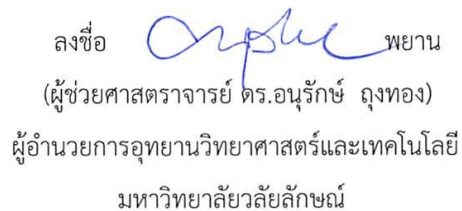 ลงชื่อ พยาน
(ผู้ช่วยศาสตราจารย์ ดร.อนุรักษ์ ถุงทอง)
ผู้อำนวยการอุทยานวิทยาศาสตร์และเทคโนโลยี
มหาวิทยาลัยวลัยลักษณ์